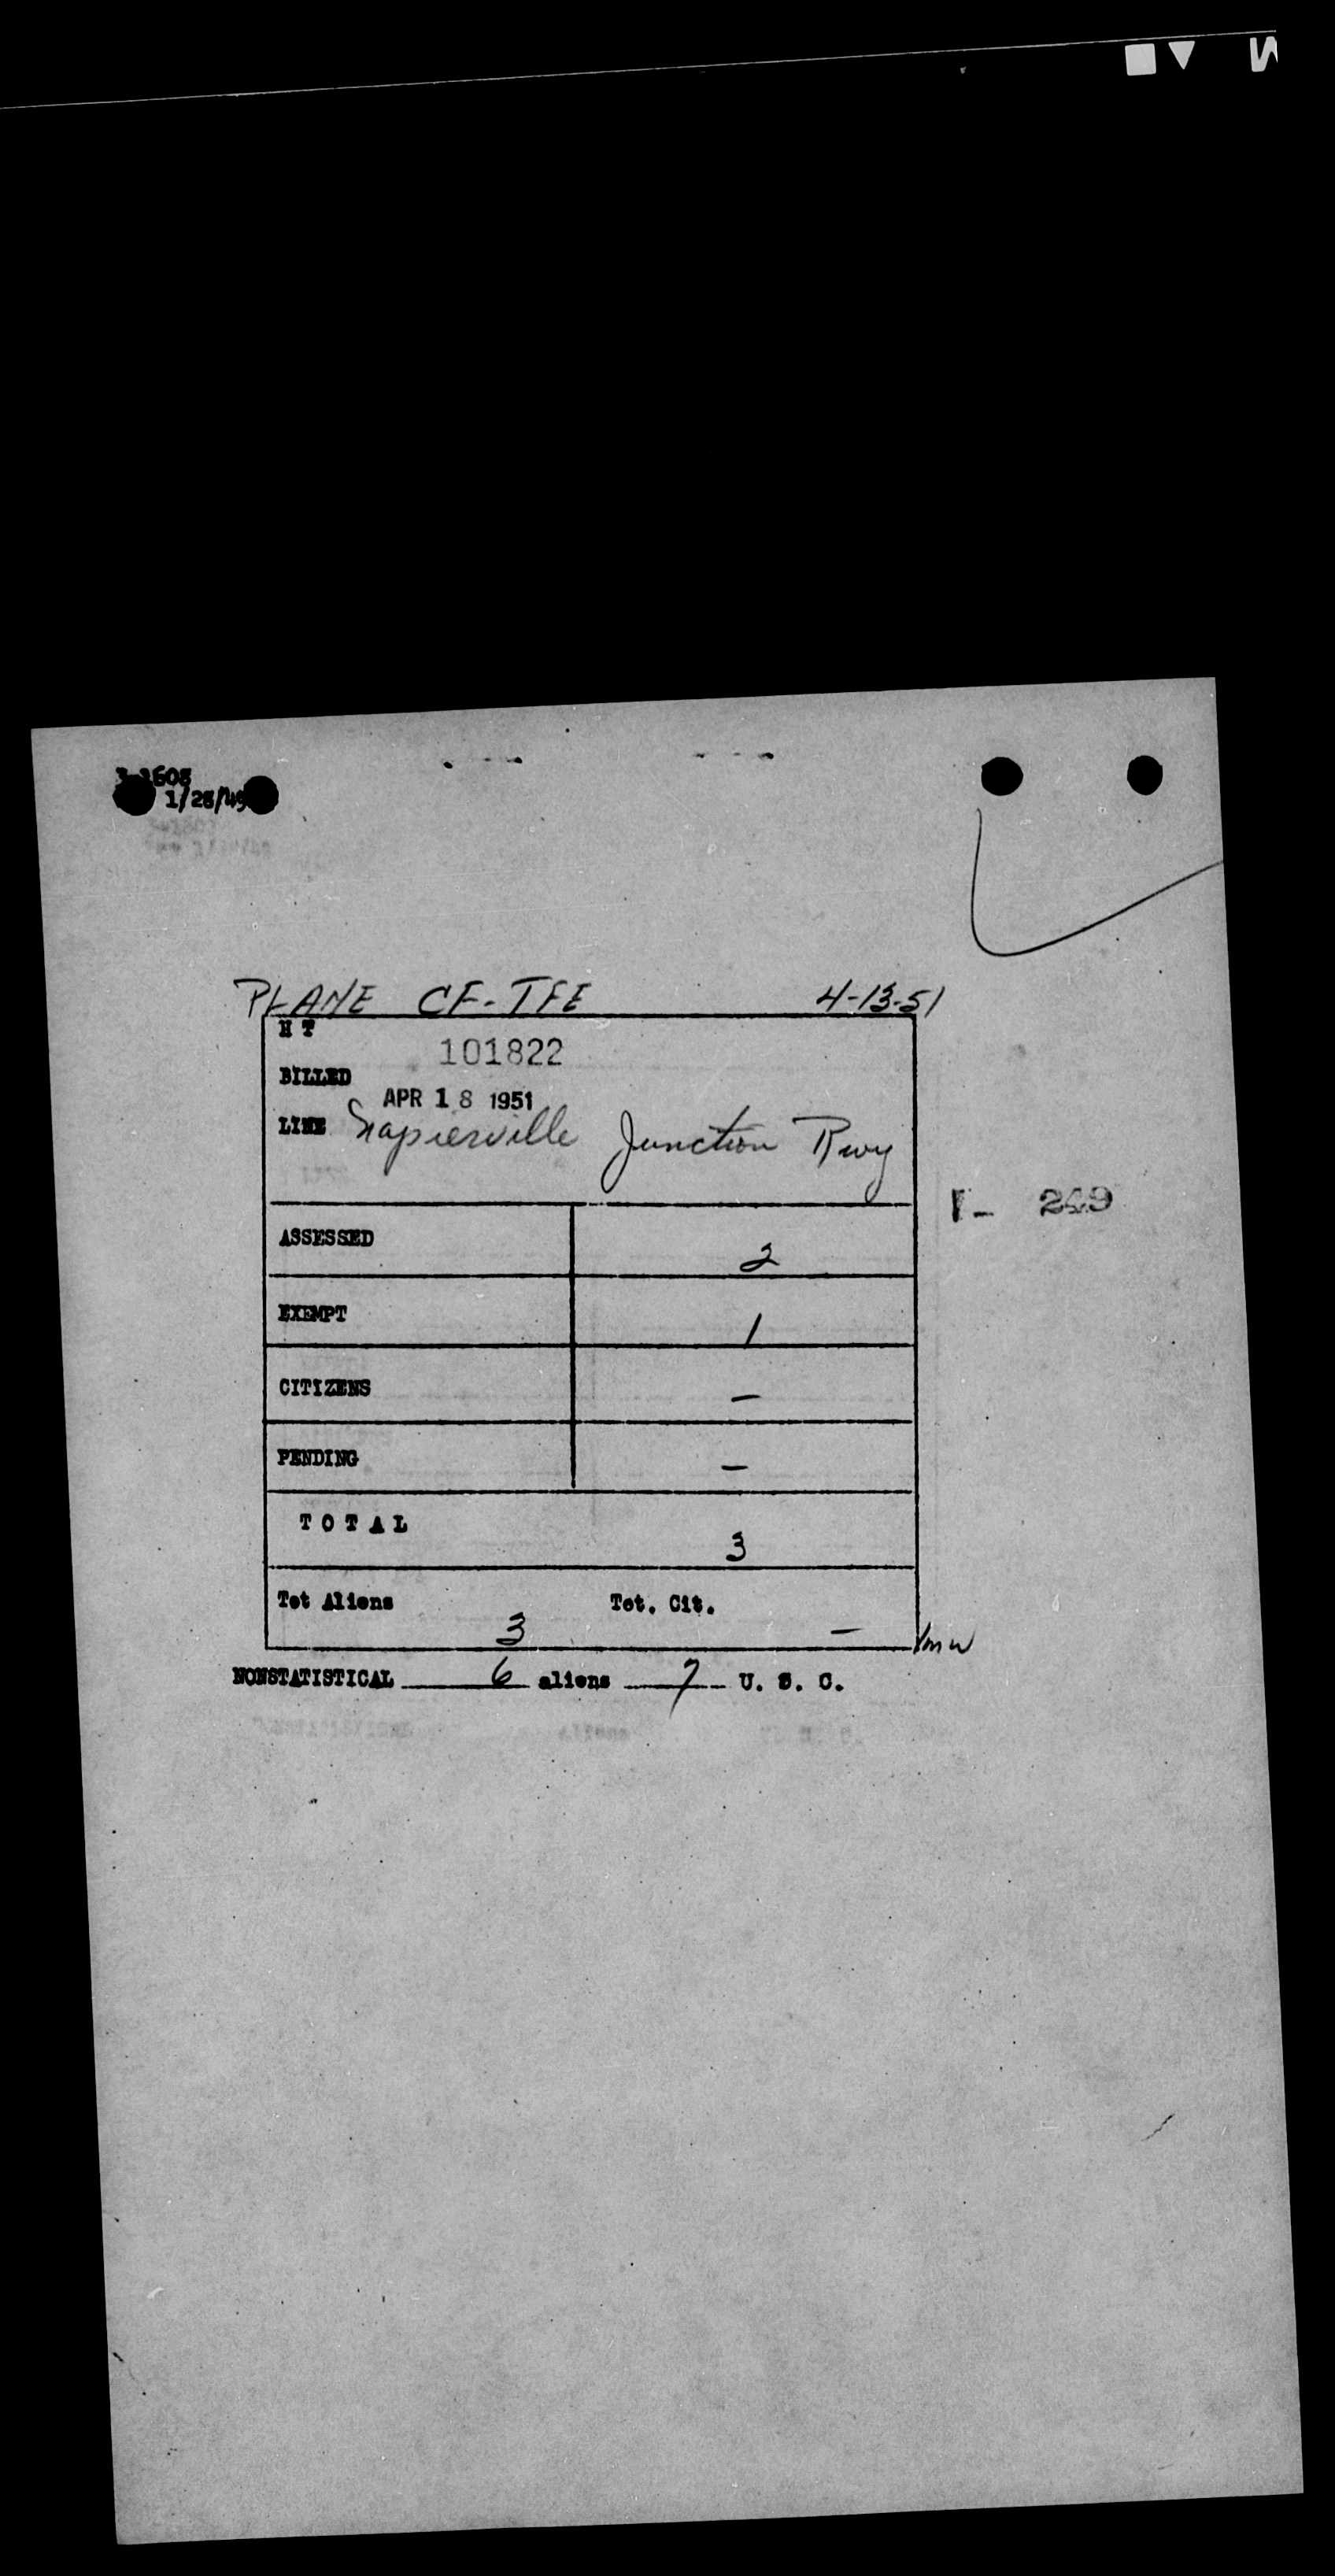 1/28/49
PLANE CF-TFE 4-13-51
H T
101822
BILLED
APR 18 1951
LINE Napierville Junction Rwy
I- 249
ASSESSED 2
EXEMPT 1
CITIZENS -
PENDING -
TOTAL 3
Tot Aliens 3 Tot. Cit. -
NONSTATISTICAL 6 aliens 7 U. S. C.